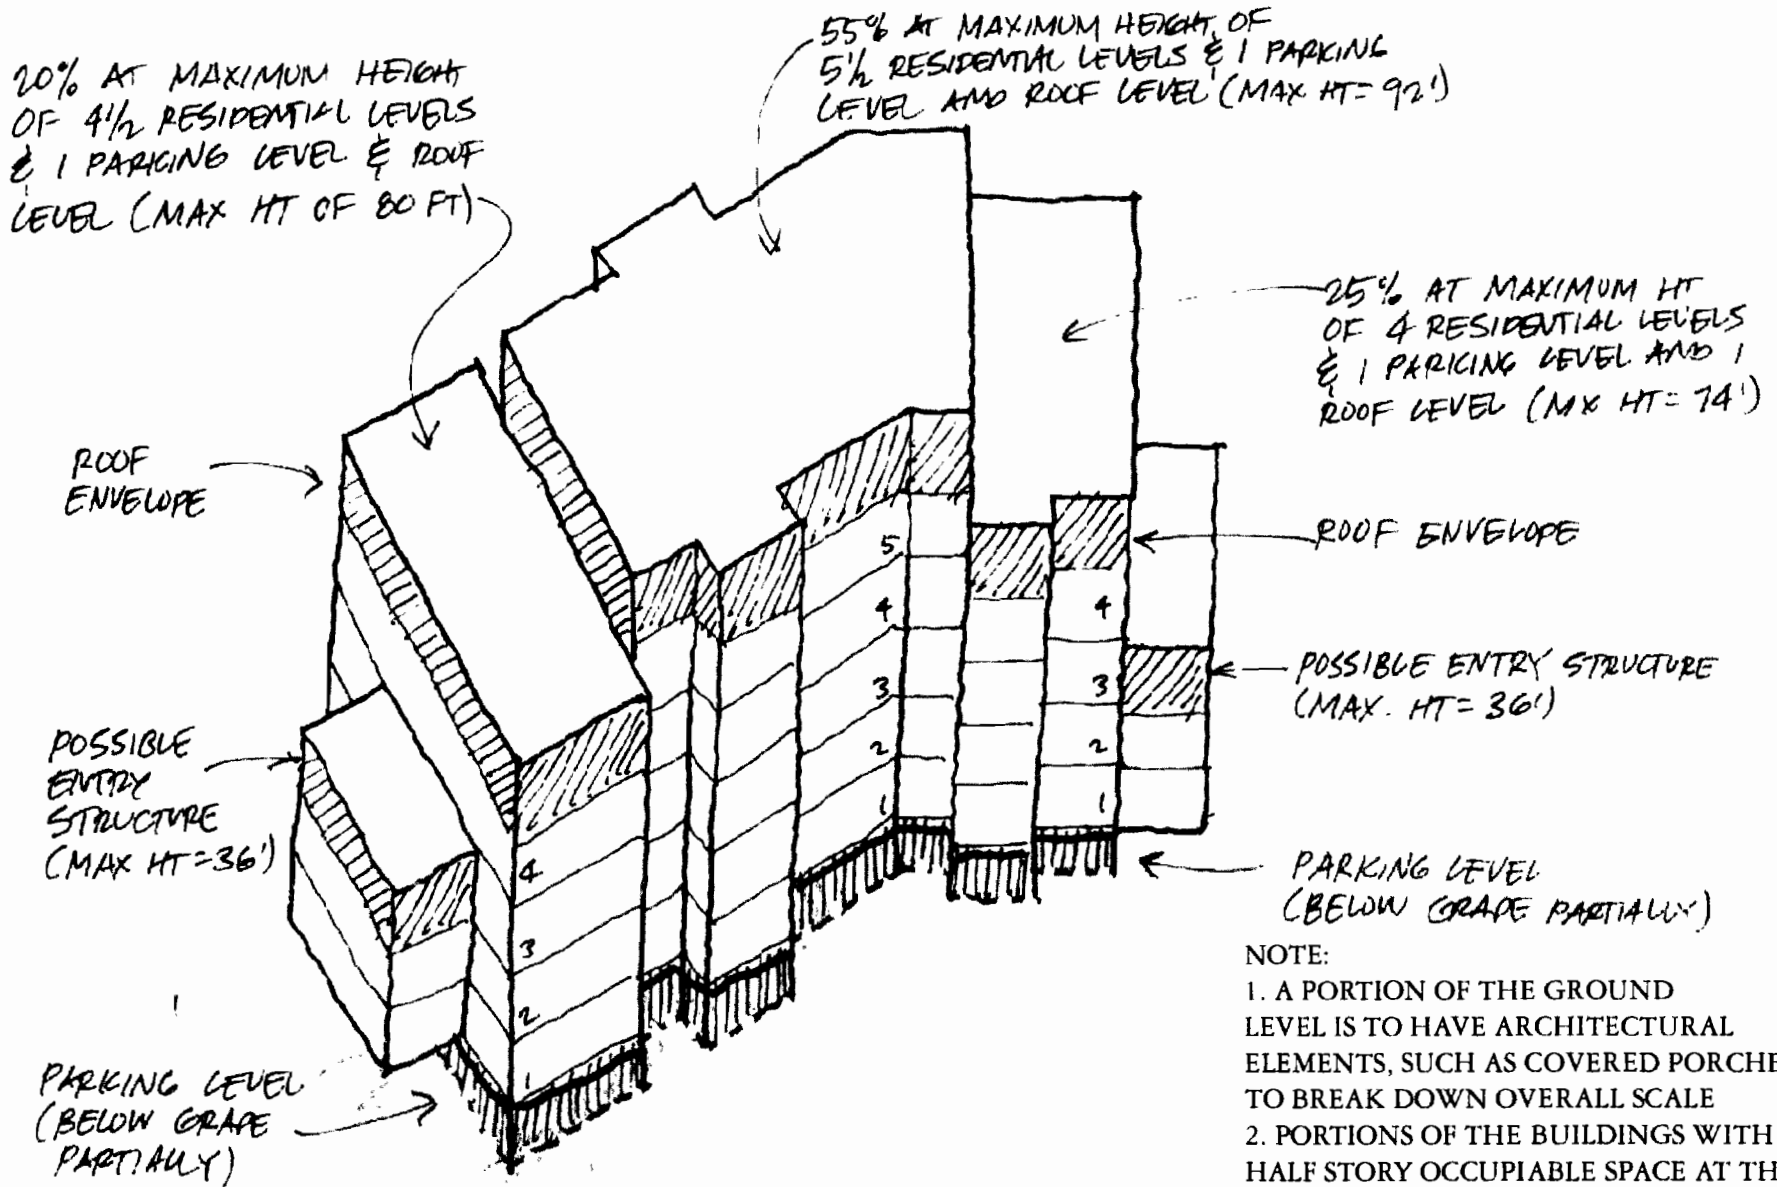 20% AT MAXIMUM HEIGHT
OF 4 1/2 RESIDENTIAL LEVELS
& 1 PARKING LEVEL & ROOF
LEVEL (MAX HT OF 80 FT)
55% AT MAXIMUM HEIGHT OF
5 1/2 RESIDENTIAL LEVELS & 1 PARKING
LEVEL AND ROOF LEVEL (MAX HT = 92')
25% AT MAXIMUM HT
OF 4 RESIDENTIAL LEVELS
& 1 PARKING LEVEL AND 1
ROOF LEVEL (MX HT = 74')
ROOF
ENVELOPE
ROOF ENVELOPE
POSSIBLE ENTRY STRUCTURE
(MAX. HT = 36')
POSSIBLE
ENTRY
STRUCTURE
(MAX HT = 36')
5
4
3
2
1
4
3
2
1
4
3
2
1
PARKING LEVEL
(BELOW GRADE PARTIALLY)
PARKING LEVEL
(BELOW GRADE
PARTIALLY)
NOTE:
1. A PORTION OF THE GROUND
LEVEL IS TO HAVE ARCHITECTURAL
ELEMENTS, SUCH AS COVERED PORCHE
TO BREAK DOWN OVERALL SCALE
2. PORTIONS OF THE BUILDINGS WITH
HALF STORY OCCUPIABLE SPACE AT TH